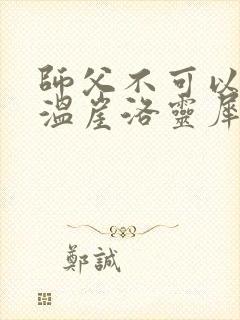 師父不可以
溫崖洛靈犀
鄭誠